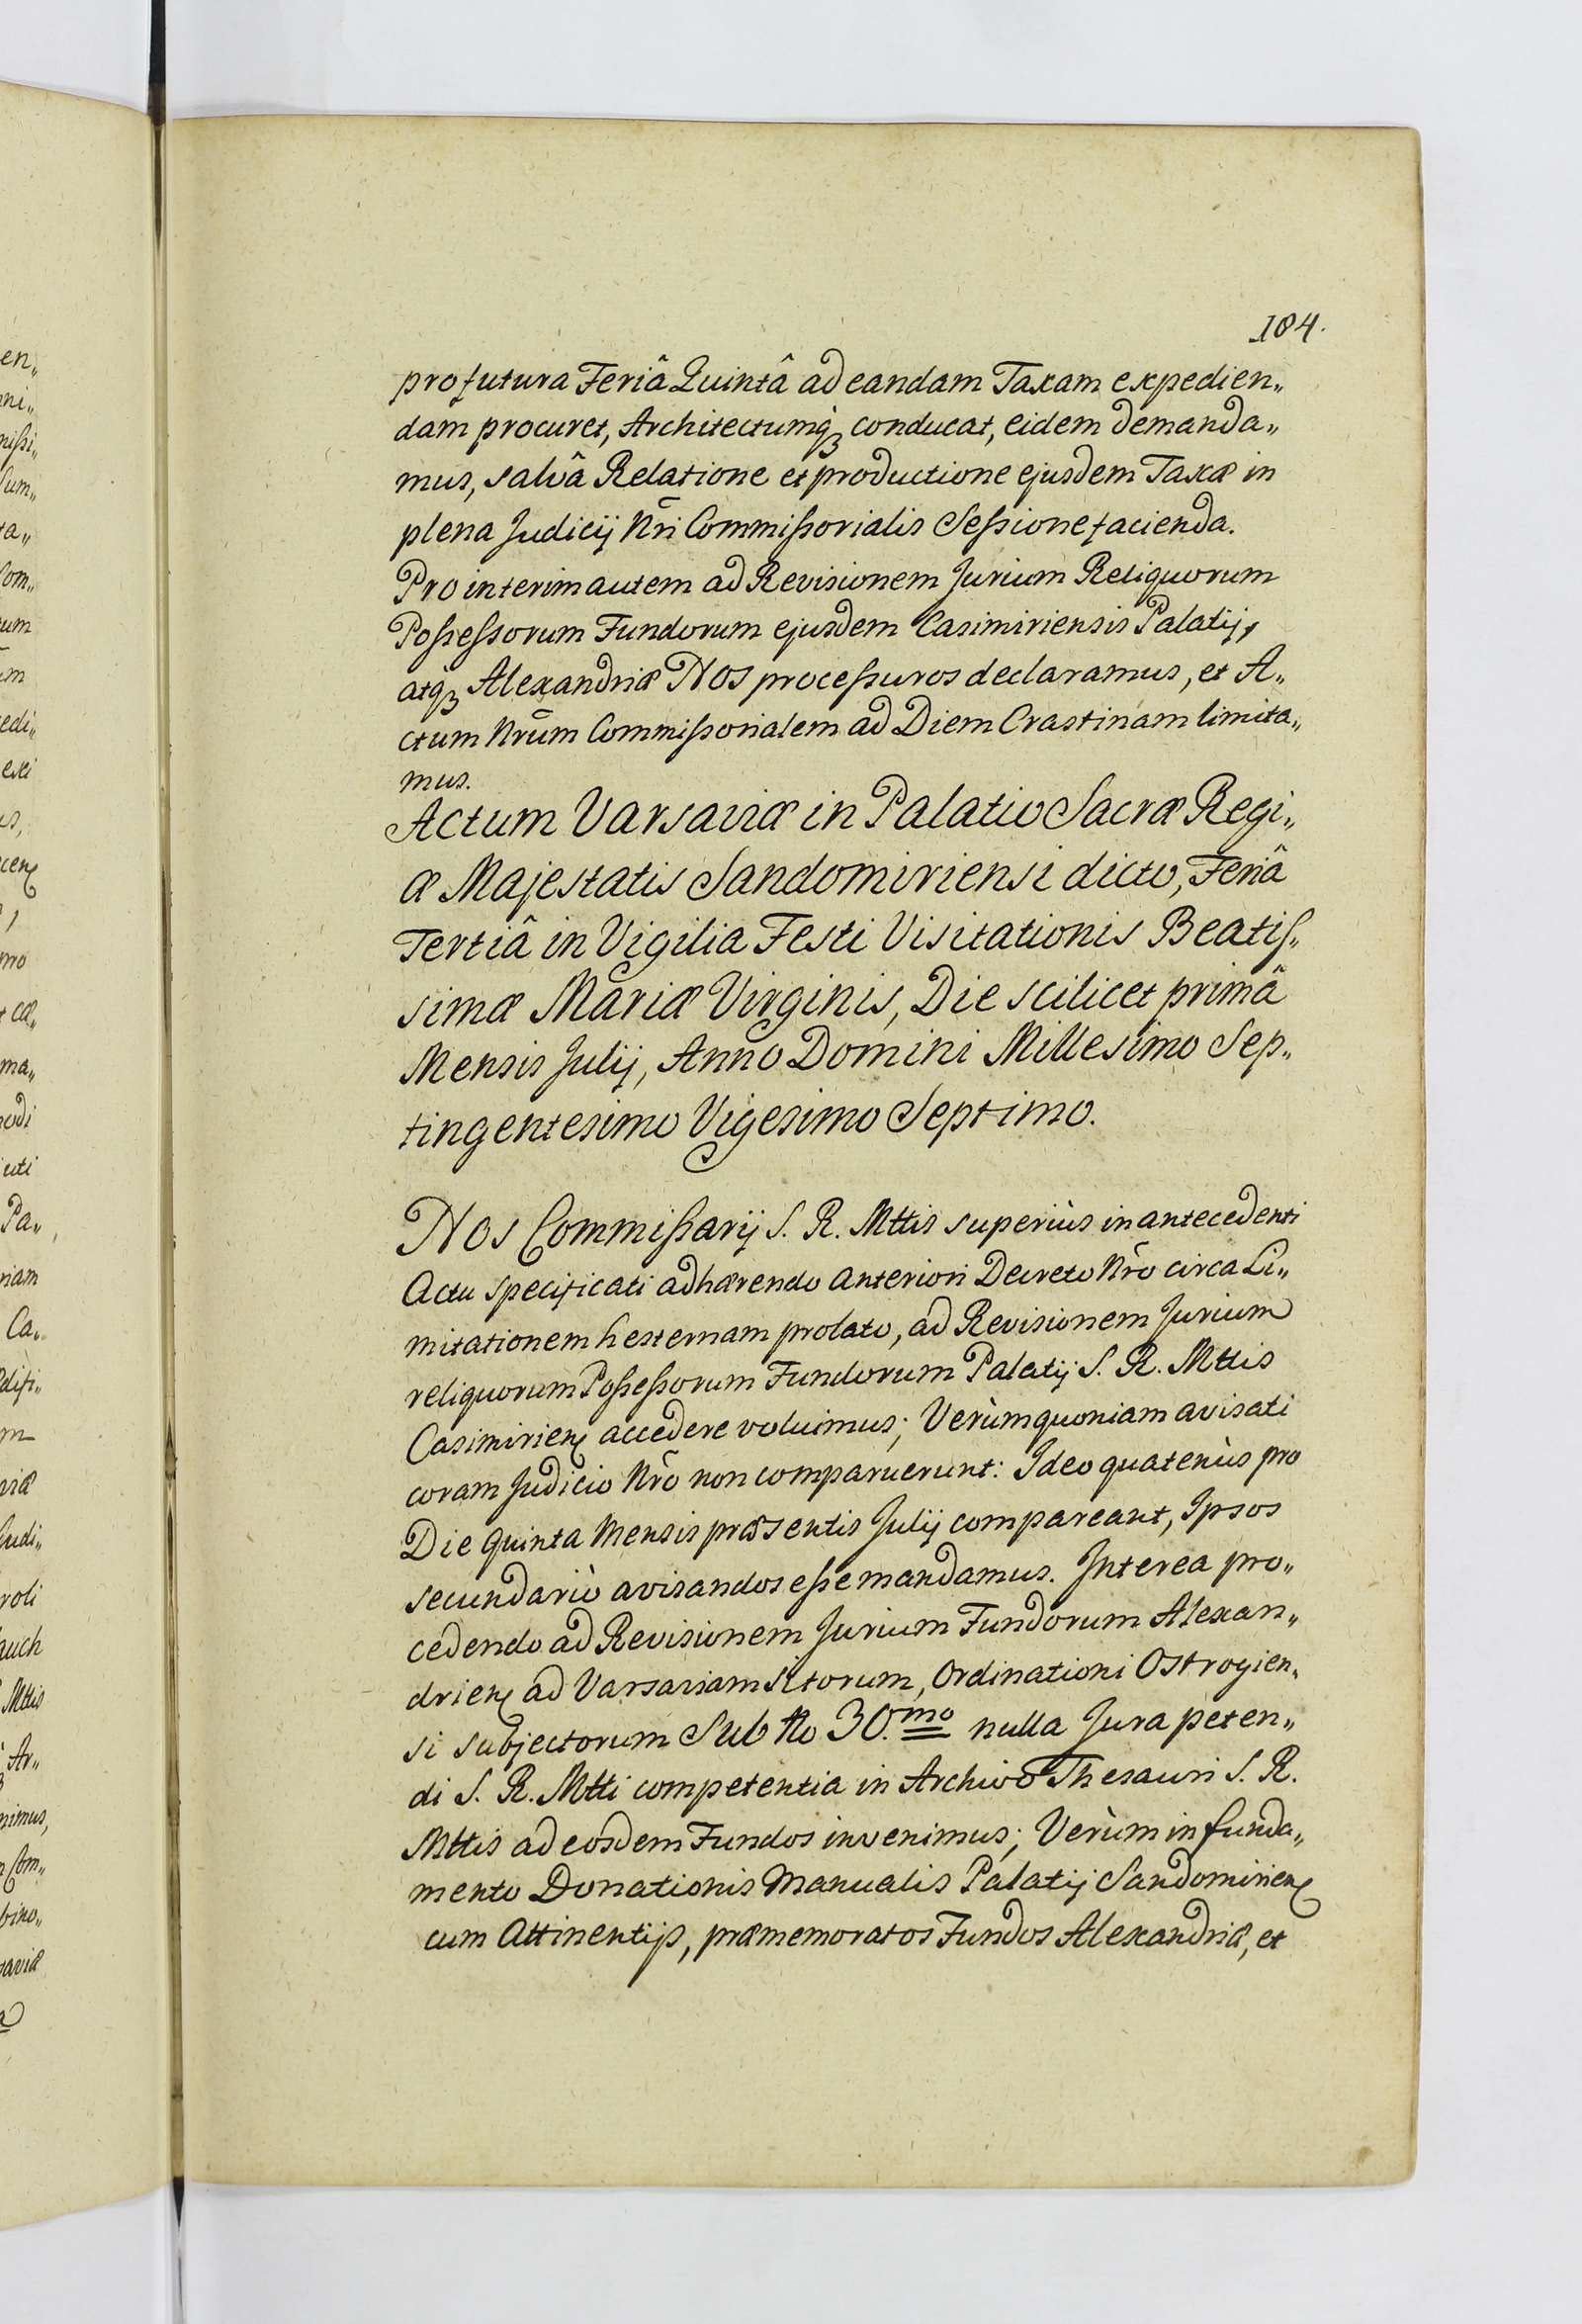 184.
pro futura Feriâ Quintâ ad eandam Taxam expedien„
dam procuret, Architectumq₃ conducat, eidem demanda„
mus, salvâ Relatione et productione ejusdem Taxæ in
plena Judicij Nr̃i Commißorialis Seßione facienda.
Pro interim autem ad Revisionem Jurium Reliquorum
Poßeßorum Fundorum ejusdem Casimiriensis Palatij,
atq₃ Alexandriæ Nos proceßuros declaramus, et A„
ctum Nrũm Commißorialem ad Diem Crastinam limita„
mus.
Actum Varsaviæ in Palatio Sacræ Regi„
æ Majestatis Sandomiriensi dicto, Feriâ
Tertiâ in Vigilia Festi Visitationis Beatis„
simæ Mariæ Virginis, Die scilicet primâ
Mensis Julij, Anno Domini Millesimo Sep„
tingentesimo Vigesimo Septimo.
Nos Commißarij S. R. Mttis superiùs in antecedenti
Actu specificati adhærendo anteriori Decreto Nr̃o circa Li„
mitationem hesternam prolato, ad Revisionem Jurium
reliquorum Poßeßorum Fundorum Palatij S. R. Mttis
Casimirien̨ accedere voluimus; Verùm quoniam avisati
coram Judicio Nr̃o non comparuerunt: Ideo quatenùs pro
Die quinta Mensis præsentis Julij compareant, Ipsos
secundariò avisandos eße mandamus. Interea pro„
cedendo ad Revisionem Jurium Fundorum Alexan„
drien̨ ad Varsaviam sitorum, Ordinationi Ostrogien„
si subjectorum Sub No 30.mo nulla Jura peten„
di S. R. Mtti competentia in Archivo Thesauri S. R.
Mttis ad eosdem Fundos invenimus; Verùm in funda„
mento Donationis Manualis Palatij Sandomirien̨
cum Attinentijs, præmemoratos Fundos Alexandriæ, et